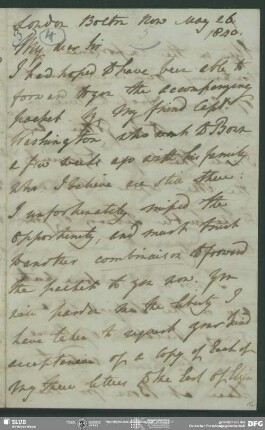 London Bolton Row May 26
1850.
My dear Sir
I had hoped to have been able to
forward to you the accompanying
packet by My friend Capt
Washington who went to Bonn
a few weeks ago with his family
who I believe are still there:
I unfortunately missed the
opportunity, and must trust
to another to forward
the packet to you now. You
will pardon me the liberty I
have taken to request your kind
acceptance of a copy of Each of
My three letters to the Earl of
SLUB
Wir führen Wissen.
DFG